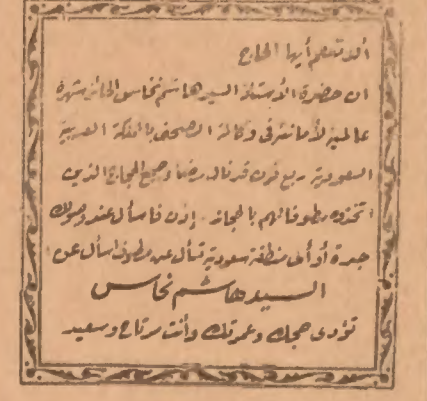 ألا تعلم أيها الحاج
ان حضرة الأستاذ السيد هاشم نحاس الحائز شهرة
عالمية لأمانته في وكالة الصحف بالمملكة العربية
السعودية ربع قرن قد نال رضاء جميع الحجاج الذين
اتخذوه مطوفا لهم بالحجاز . إذن فاسأل عند وصولك
جدة أو أى منطقة سعودية تسأل عن مطوف اسأل عن
السيد هاشم نحاس
تؤدى حجك وعمرتك وأنت مرتاح وسعيد